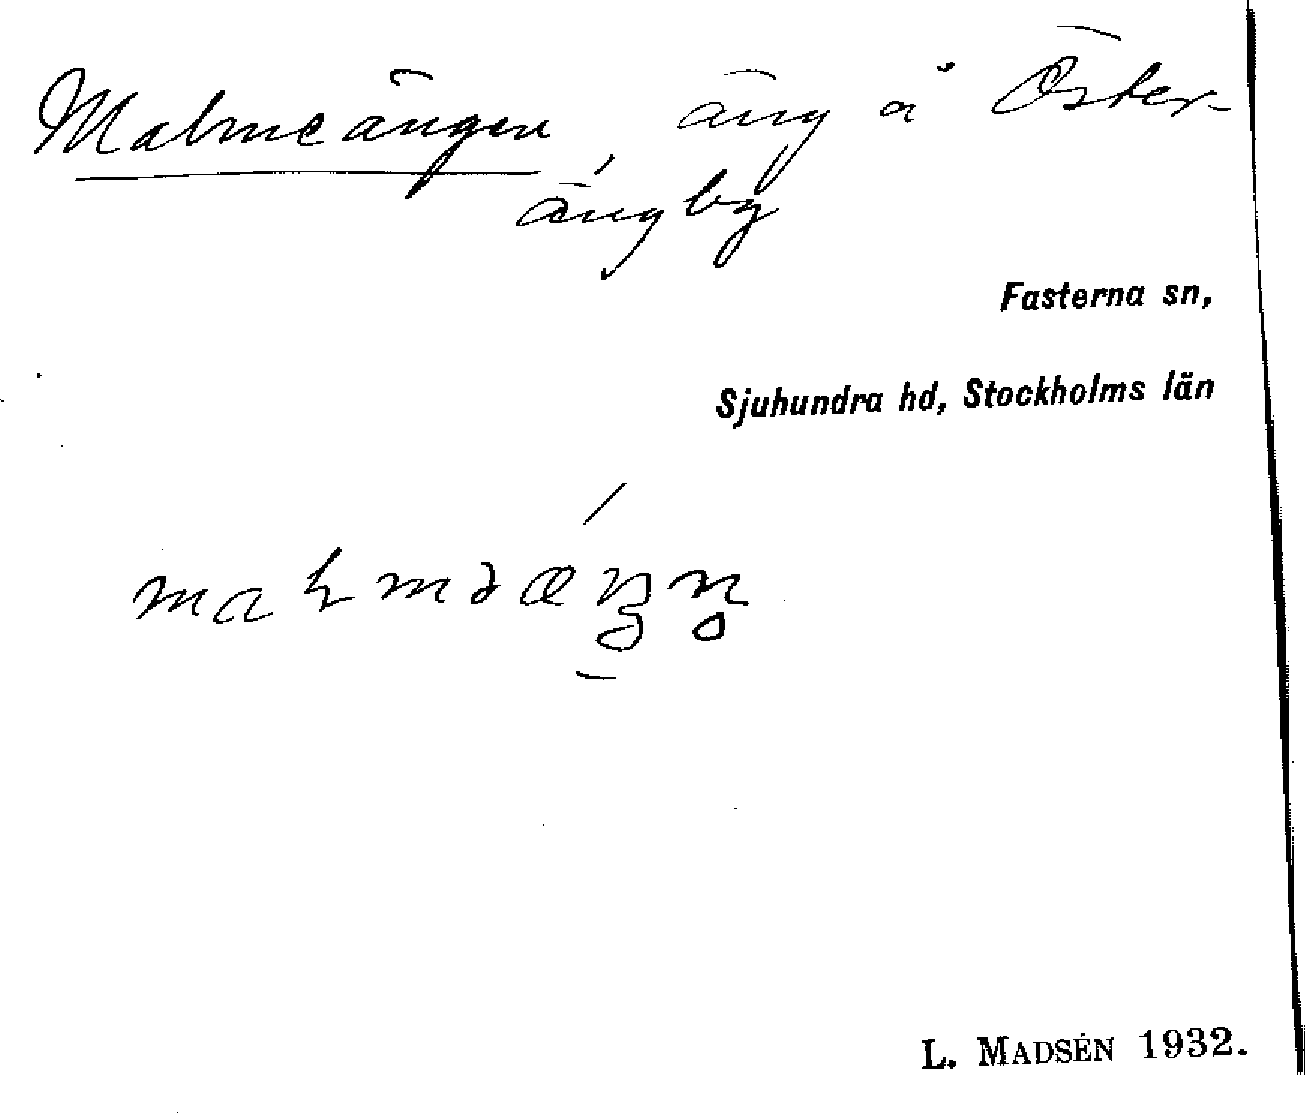 Malmeängen, äng å Öster-
ängby
Fasterna sn,
Sjuhundra hd, Stockholms län
L. MADSÉN 1932.